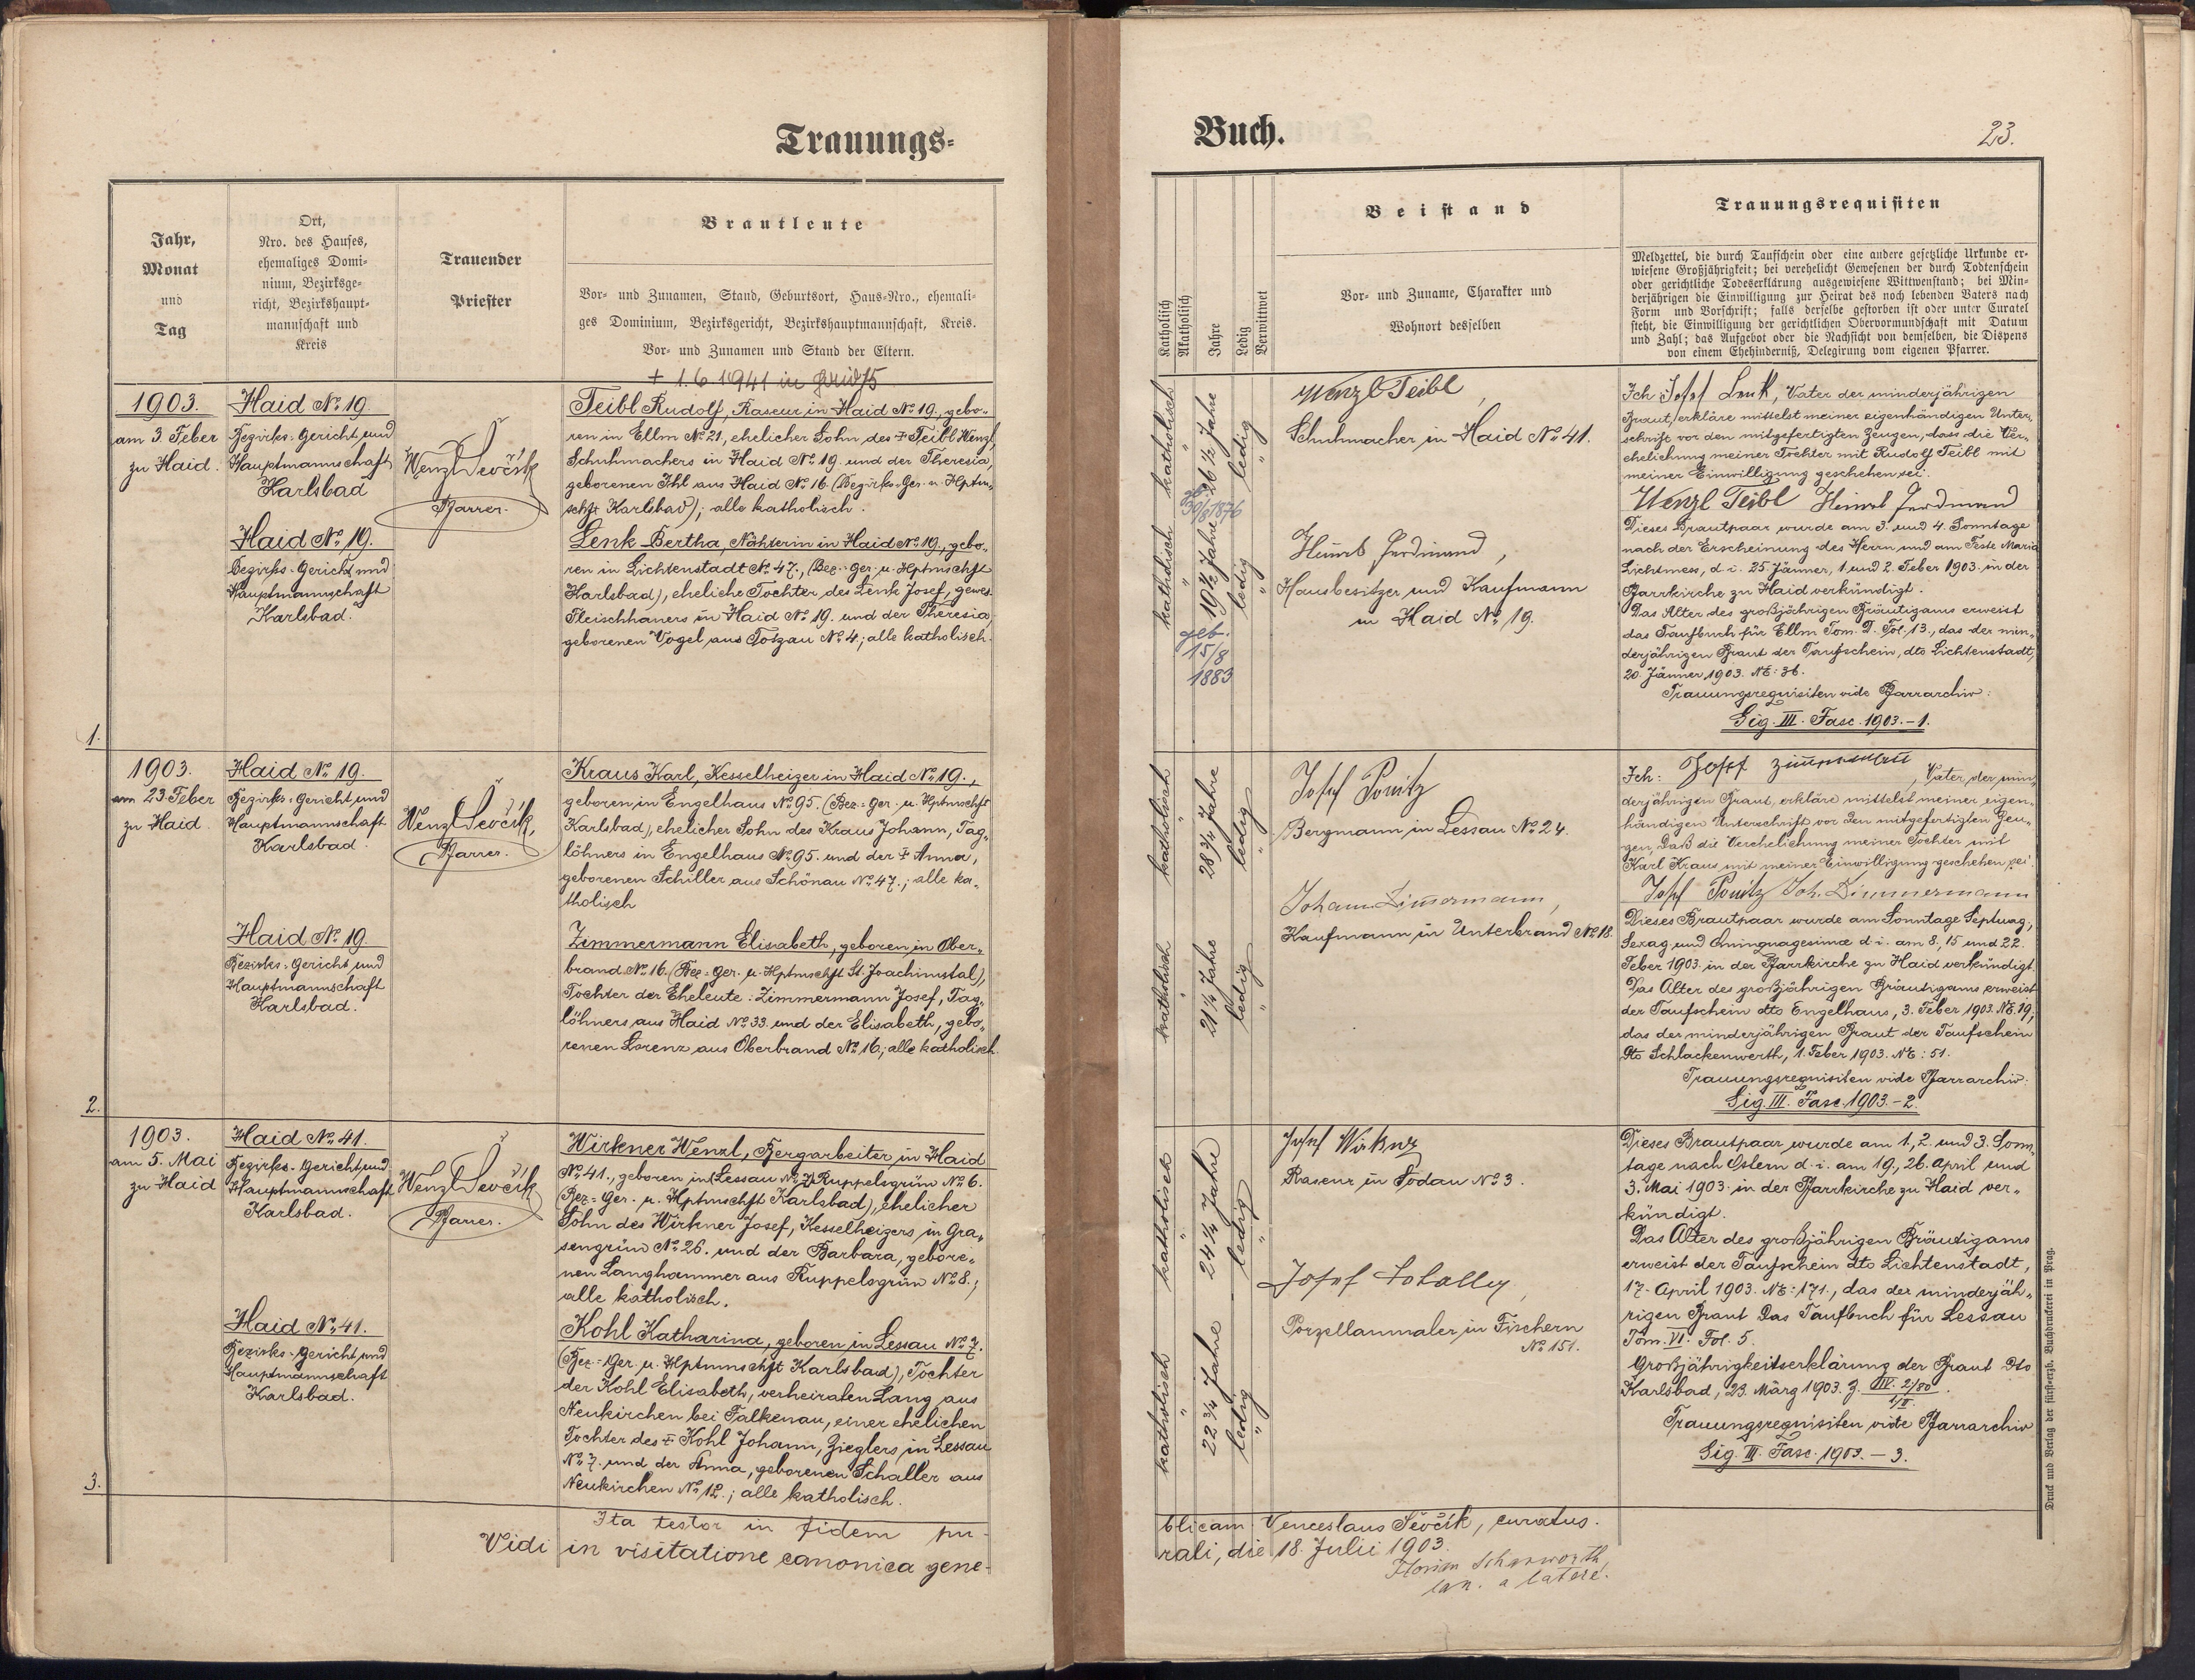 Trauungs-
Jahr,
Monat
und
Tag
Ort,
Nro. des Hauses,
ehemaliges Domi-
nium, Bezirksge-
richt, Bezirkshaupt-
mannschaft und
Kreis
Trauender
Priester
Brautleute
Vor- und Zunamen, Stand, Geburtsort, Haus-Nro., ehemali-
ges Dominium, Bezirksgericht, Bezirkshauptmannschaft, Kreis.
Vor- und Zunamen und Stand der Eltern.
† 1.6 1941 in Haid 75
1903.
am 3. Feber
zu Haid.
1.
Haid No. 19.
Bezirks-Gericht und
Hauptmannschaft
Karlsbad
Haid No. 19.
Bezirks-Gericht und
Hauptmannschaft
Karlsbad.
Wenzl Ševčík
Pfarrer.
Teibl Rudolf, Raseur in Haid No. 19, gebo-
ren in Ellm No. 21, ehelicher Sohn des † Teibl Wenzl,
Schuhmachers in Haid No. 19. und der Theresia,
geborenen Ihl aus Haid No. 16. (Bezirks-Ger. u. Hptm-
schft Karlsbad); alle katholisch.
Lenk Bertha, Nähterin in Haid No. 19, gebo-
ren in Lichtenstadt No. 47., (Bez.-Ger. u. Hptmschft
Karlsbad), eheliche Tochter des Lenk Josef, gewes.
Fleischhauers in Haid No. 19. und der Theresia,
geborenen Vogel aus Totzau No. 4; alle katholisch.
1903.
am 23. Feber
zu Haid
2.
Haid No. 19.
Bezirks-Gericht und
Hauptmannschaft
Karlsbad
Haid No. 19.
Bezirks-Gericht und
Hauptmannschaft
Karlsbad.
Wenzl Ševčík,
Pfarrer.
Kraus Karl, Kesselheizer in Haid No. 19.,
geboren in Engelhaus No. 95. (Bez.-Ger. u. Hptmschft
Karlsbad), ehelicher Sohn des Kraus Johann, Tag-
löhners in Engelhaus No. 95. und der † Anna,
geborenen Schiller aus Schönau No. 47.; alle ka-
tholisch
Zimmermann Elisabeth, geboren in Ober-
brand No. 16. (Bez.-Ger. u. Hptmschft St. Joachimstal),
Tochter der Eheleute: Zimmermann Josef, Tag-
löhners aus Haid No. 33. und der Elisabeth, gebo-
renen Lorenz aus Oberbrand No. 16; alle katholisch.
1903.
am 5. Mai
zu Haid
3.
Haid No. 41.
Bezirks-Gericht und
Hauptmannschaft
Karlsbad.
Haid No. 41.
Bezirks-Gericht und
Hauptmannschaft
Karlsbad.
Wenzl Ševčík
Pfarrer.
Wirkner Wenzl, Bergarbeiter in Haid
No. 41., geboren in Ruppelsgrün No. 6.
(Bez.-Ger. u. Hptmschft Karlsbad), ehelicher
Sohn des Wirkner Josef, Kesselheizers in Gra-
sengrün No. 26. und der Barbara, gebore-
nen Langhammer aus Ruppelsgrün No. 8.;
alle katholisch.
Kohl Katharina, geboren in Lessau No. 7.
(Bez.-Ger. u. Hptmmschft Karlsbad), Tochter
der Kohl Elisabeth, verheiraten Lang aus
Neukirchen bei Falkenau, einer ehelichen
Tochter des † Kohl Johann, Zieglers in Lessau
No. 7. und der Anna, geborenen Schaller aus
Neukirchen No. 12.; alle katholisch.
Ita testor in fidem pu-
Vidi in visitatione canonica gene-
Buch.
23.
Katholisch
Akatholisch
Jahre
Ledig
Verwittwet
Beistand
Vor- und Zuname, Charakter und
Wohnort desselben
Trauungsrequisiten
Meldzettel, die durch Taufschein oder eine andere gesetzliche Urkunde er-
wiesene Großjährigkeit; bei verehelicht Gewesenen der durch Todtenschein
oder gerichtliche Todeserklärung ausgewiesene Wittwenstand; bei Min-
derjährigen die Einwilligung zur Heirat des noch lebenden Vaters nach
Form und Vorschrift; falls derselbe gestorben ist oder unter Curatel
steht, die Einwilligung der gerichtlichen Obervormundschaft mit Datum
und Zahl; das Aufgebot oder die Nachsicht von demselben, die Dispens
von einem Ehehinderniß, Delegirung vom eigenen Pfarrer.
katholisch
26 ½ Jahre
ledig
30/8 1876
katholisch
19 ½ Jahre
ledig
geb.
15/8
1883
Wenzl Teibl,
Schuhmacher in Haid No. 41.
Ferdinand,
Hausbesitzer und Kaufmann
in Haid No. 19.
Ich Josef Lenk, Vater der minderjährigen
Braut, erkläre mittelst meiner eigenhändigen Unter-
schrift vor den mitgefertigten Zeugen, dass die Ver-
ehelichung meiner Tochter mit Rudolf Teibl mit
meiner Einwilligung geschehen sei.
Wenzl Teibl Ferdinand
Dieses Brautpaar wurde am 3. und 4. Sonntage
nach der Erscheinung des Herrn und am Feste Mariä
Lichtmess, d. i. 25. Jänner, 1. und 2. Feber 1903. in der
Pfarrkirche zu Haid verkündigt.
Das Alter des großjährigen Bräutigams erweist
das Taufbuch für Ellm Tom. Fol. 13., das der min-
derjährigen Braut der Taufschein, dto Lichtenstadt,
20. Jänner 1903. NE: 36.
Trauungsrequisiten vide Pfarrarchiv:
Sig. III. Fasc. 1903.-1.
katholisch
28 ¾ Jahre
ledig
katholisch
21 ¼ Jahre
ledig
Josef Ponitz
Bergmann in Lessau No. 24.
Johann Zimmermann,
Kaufmann in Unterbrand No. 18.
Ich: Josef Zimmermann, Vater der min-
derjährigen Braut, erkläre mittelst meiner eigen-
händigen Unterschrift vor den mitgefertigten Zeu-
gen, daß die Verehelichung meiner Tochter mit
Karl Kraus mit meiner Einwilligung geschehen sei.
Josef Ponitz Joh. Zimmermann
Dieses Brautpaar wurde am Sonntage Septuag.,
Sexag. und Quinquagesimæ d. i. am 8., 15 und 22.
Feber 1903. in der Pfarrkirche zu Haid verkündigt.
Das Alter des großjährigen Bräutigams erweist
der Taufschein dto Engelhaus, 3. Feber 1903. NE. 19;
das der minderjährigen Braut der Taufschein
dto Schlackenwerth, 1. Feber 1903. NE: 51.
Trauungsrequisiten vide Pfarrarchiv:
Sig. III. Fasc. 1903.-2.
katholisch
24 ¼ Jahre
ledig
katholisch
22 ¾ Jahre
ledig
Josef Wirkner
Raseur in Sodau No. 3.
Josef
Porzellanmaler in Fischern
No. 151.
Dieses Brautpaar wurde am 1., 2. und 3. Sonn-
tage nach Ostern d. i. am 19., 26. April und
3. Mai 1903. in der Pfarrkirche zu Haid ver-
kündigt.
Das Alter des großjährigen Bräutigams
erweist der Taufschein dto Lichtenstadt,
17. April 1903. NE: 171., das der minderjäh-
rigen Braut das Taufbuch für Lessau
Tom. VI. Fol. 5.
Großjährigkeitserklärung der Braut dto
Karlsbad, 23. März 1903. Z.
Trauungsrequisiten vide Pfarrarchiv
Sig. III. Fasc. 1903.-3.
blicam: Venceslaus Ševčík, curatus.
rali, die 18. Julii 1903.
can. a latere.
Druck und Verlag der fürst-erzb. Buchdruckerei in Prag.